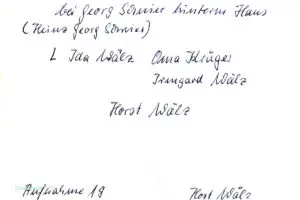 bei Georg Sörnier hinterm Haus
(Heinz Georg Sörnier)
L Ida Wälz Oma Krüger
Irmgard Wälz
Horst Wälz
Aufnahme 19
Horst Wälz